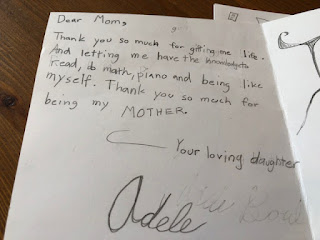 Dear Mom,
Thank you so much for gifting me life.
And letting me have the knowledge to
read, do math, piano and being like
myself. Thank you so much for
being my MOTHER.
Your loving daughter
Adele